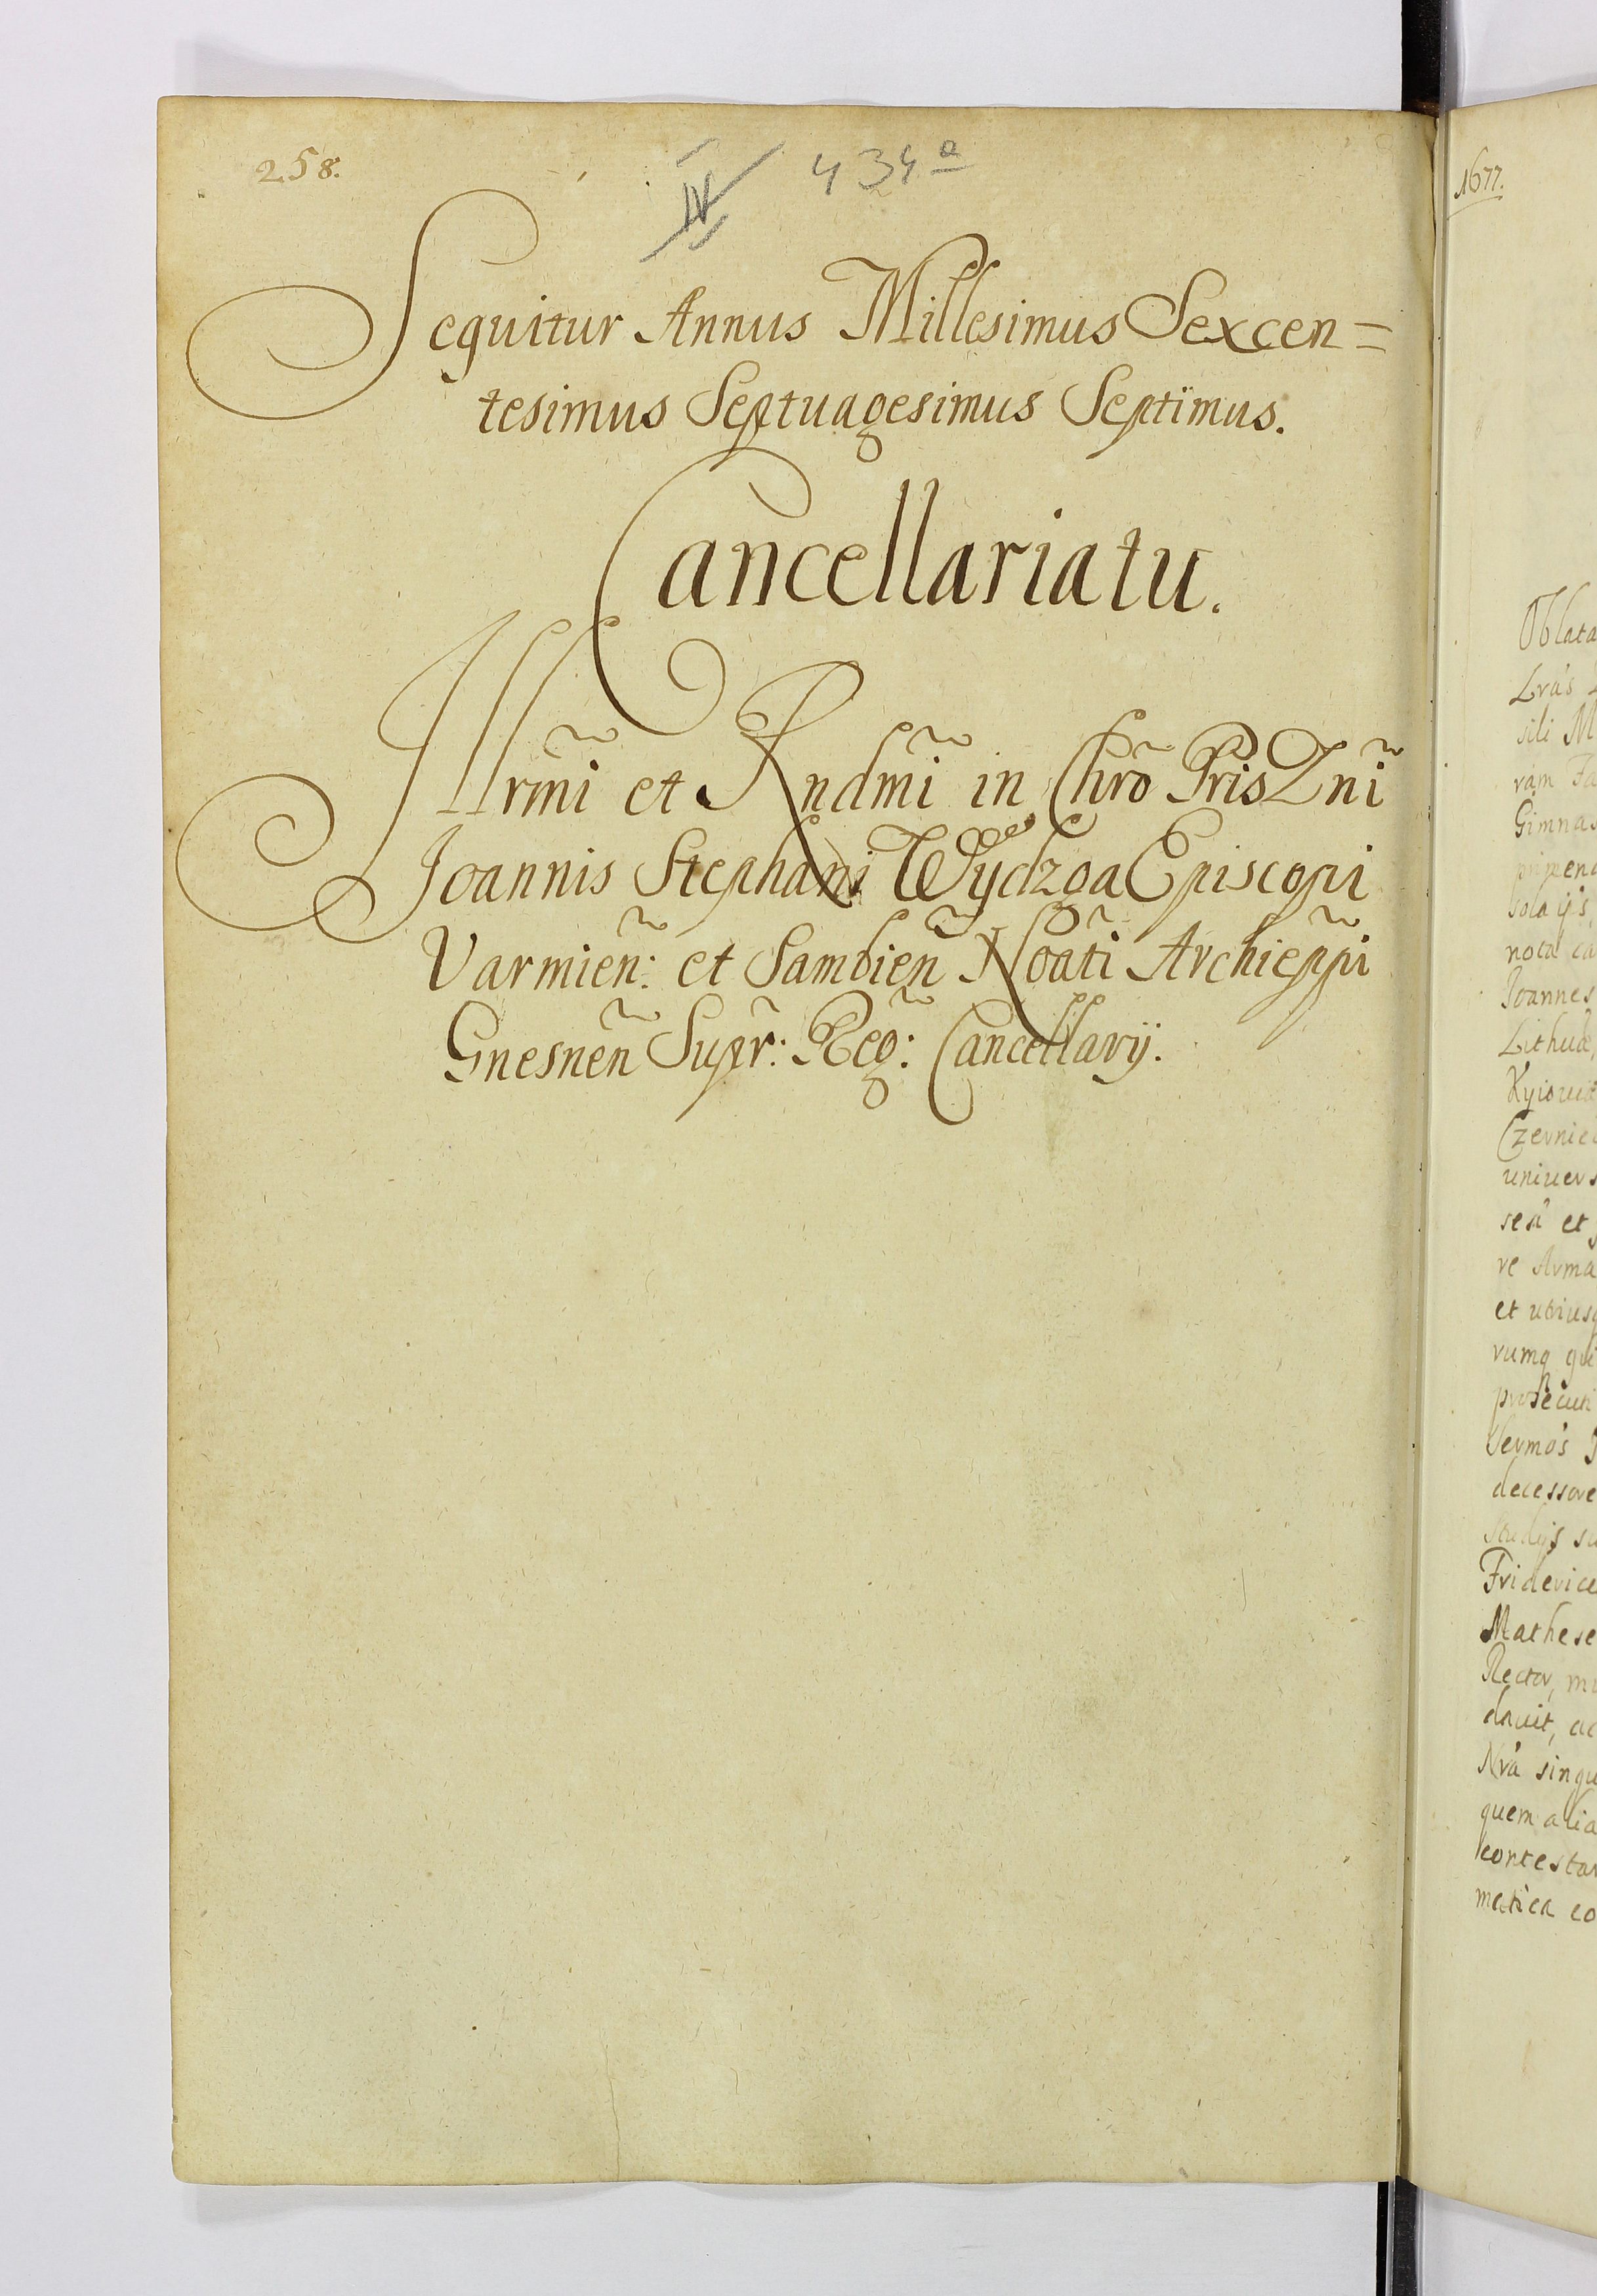 258.
IV 434a
Sequitur Annus Millesimus Sexcen=
tesimus Septuagesimus Septimus.
Cancellariatu.
Illrm̃i et Rndm̃i in Chrõ Pris Dnĩ
Joannis Stephani Wÿdzga Episcopi
Varmieñ: et Sambieñ Noatĩ Archieppĩ
Gnesneñ Supr̃: Reg̃: Cancellarÿ.
1677.
Oblata
Lras
sili M
ram Fa
Gimnas
solaÿs,
nota ca
Joannes
Lithuae,
Kyiouiae
Czernie
uniuers
sea et
re Arma
et utriusq
rumq qui
prosecuti
Sermos
decessore
Studÿs su
Friderice
Mathese
Rector, mi
dauit, ac
Nra singu
quem alia
contestan
matica co